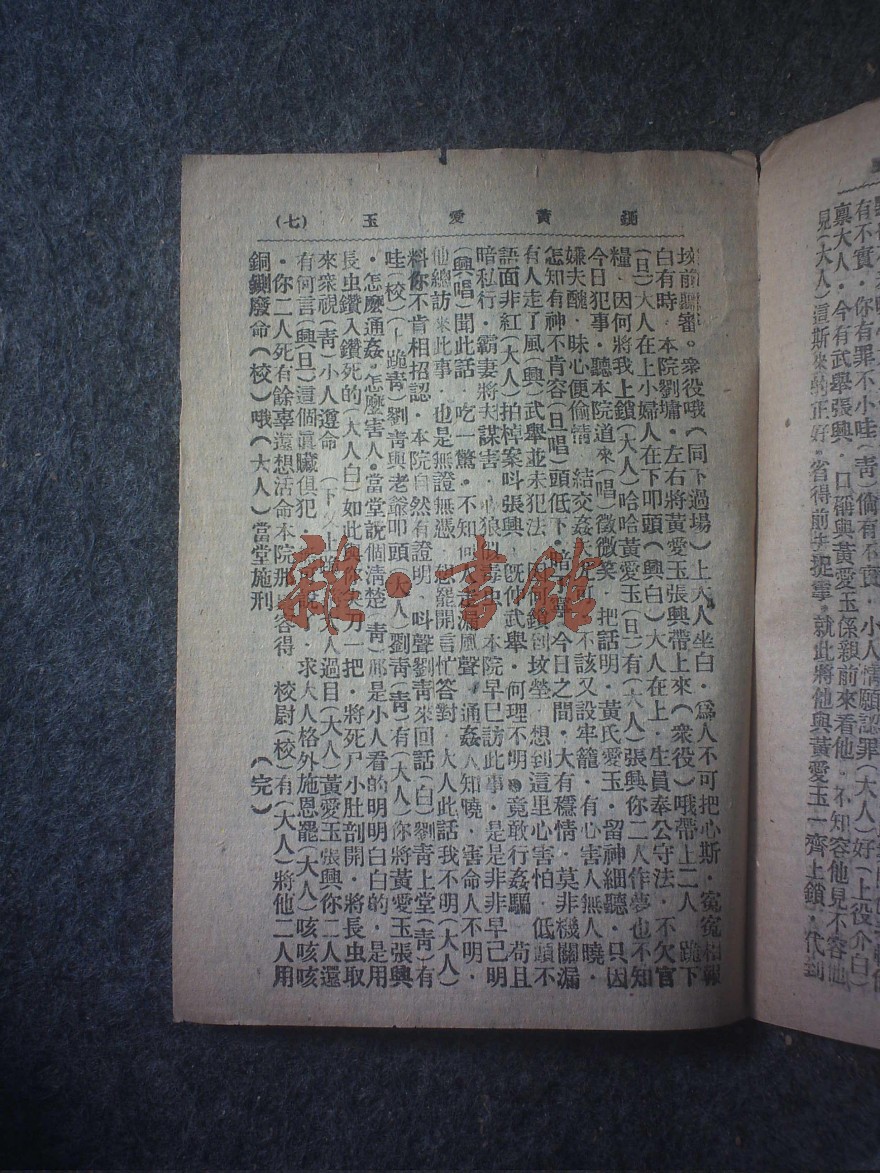 鍘黃愛玉(七)
坟前聽審。衆役哦(同下過場)上大人坐白·爲人不可把心斯·寃寃相報
白有時·本院劉墉·左右將黃愛玉張興帶上來(衆役)哦帶上二人·跪下
(旦)大人在上小婦人在下叩頭(興白)大人在上·生員奉公守法·不欠官
糧·因何將我上鎖(大人)哈哈黃愛玉(旦)有(大人)張興你二人作夢也不知
今日犯事·聽本院道來(唱)微微笑·把話明·黃氏愛玉·留神細聽·只因
嫌夫醜·昧心便偷情·結交姦不該又設牢籠·有心害人無人曉·
怎知有神不肯容(旦唱)頭低下·暗今日之間·大有穩情·莫非機關漏
有人走了風(興)武舉並未犯法·坟塋·想到這里心害怕·低頭不
語面非紅(大人)拍棹案呌張興·旣仕武舉·何理不明·竟敢行姦騙·苟且
暗私行·霸妻將夫謀害·狼本院早巳訪此事·是是非非早己明
(興唱)聞此話·吃一驚·不知走漏風聲·通姦人知曉·害命人不明·
他總訪來此事·也是無證無憑·想罷開言忙答對·大人此話我不明(大人)
料你不肯相招認·本院自然有證明·呌聲劉靑來回話(白)劉靑上堂(靑)有
哇(校)(卜跪靑)劉靑與老爺叩頭(大人)劉靑(靑)有(大人)你將黃愛玉張興
·怎麽通姦·怎麽害人。當堂說個清楚(靑)那是小人看的明明白白的·是用
長虫鑽入鑽死的(大人白)如此與刀一把·將死尸小肚剖開·將長虫取
來衆視(靑)小人遵命(下人過目(大人)黃愛玉張興你二人還
有何言(興旦)這個眞贓俱犯·求大人格外施恩罷(大人)咳咳咳
·你二人死有餘辜還想活命本院那容得·校尉(校)有(大人)將他二人用
銅鍘廢命(校)哦(大人)當堂施刑(完)
有不實·你有罪不小哇(靑)偷有不實·小人情願認罪(大人)好(上役介白)
禀大人·今有武舉張興·口稱與黃愛玉係親前來看他·不知容他見不容他
見(大人)這斯來的正好·省得前去捉拿·就此將他與黃愛玉一齊上鎖·代到
雜·書館